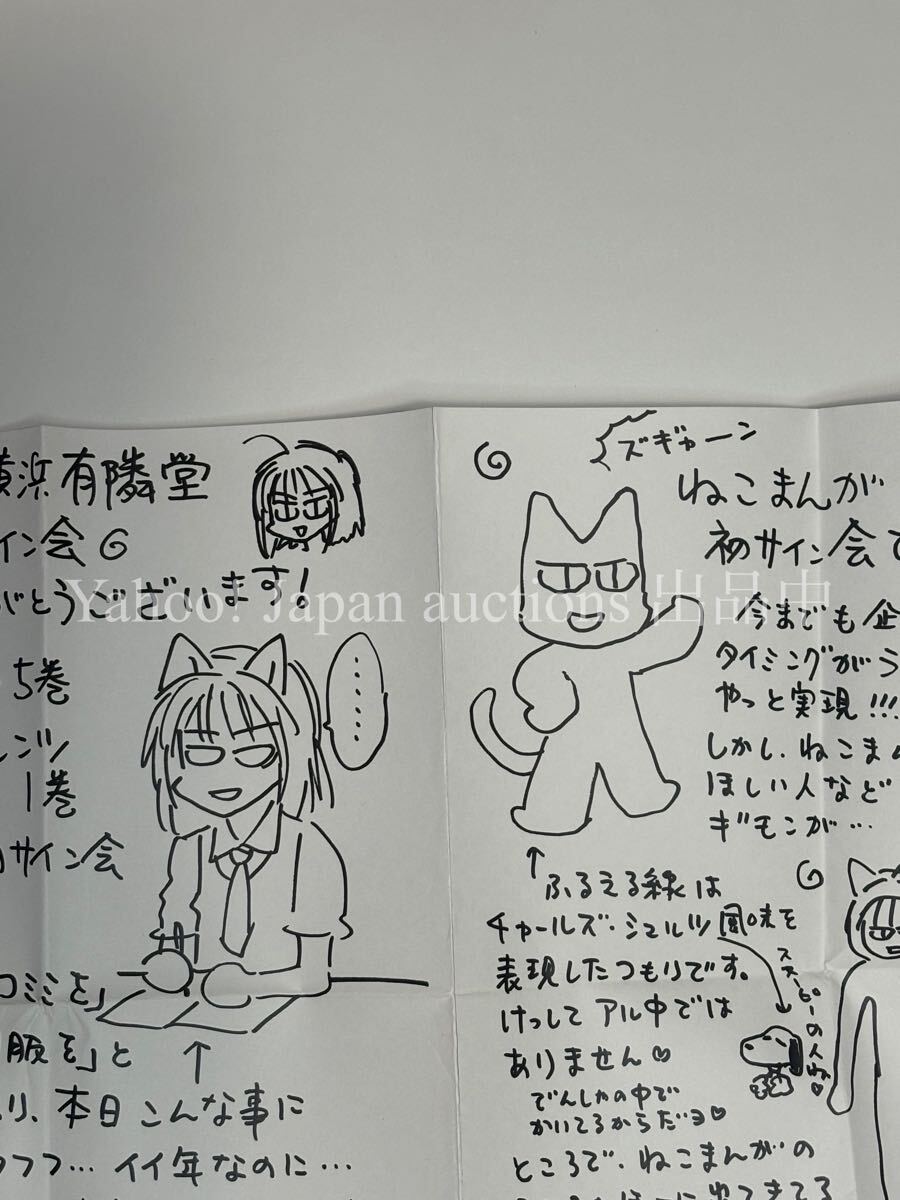 横浜有隣堂
イン会
がとうございます!
5巻
レンツ
1巻
サイン会
コミミを」
服を」と
り、本日こんな事に
フフフ…イイ年なのに…
……
ズギャーン
ねこまんが
初サイン会で
今までも企
タイミングがう
やっと実現!!!
しかし、ねこまん
ほしい人など
ギモンが…
↑ふるえる線は
チャールズ・シュルツ風味を
表現したつもりです。
けっしてアル中では
ありません♡
でんしゃの中で
かいてるからだヨ♡
スヌーピーの人ね♡
ところで、ねこまんがの
Yahoo! Japan auctions 出品中